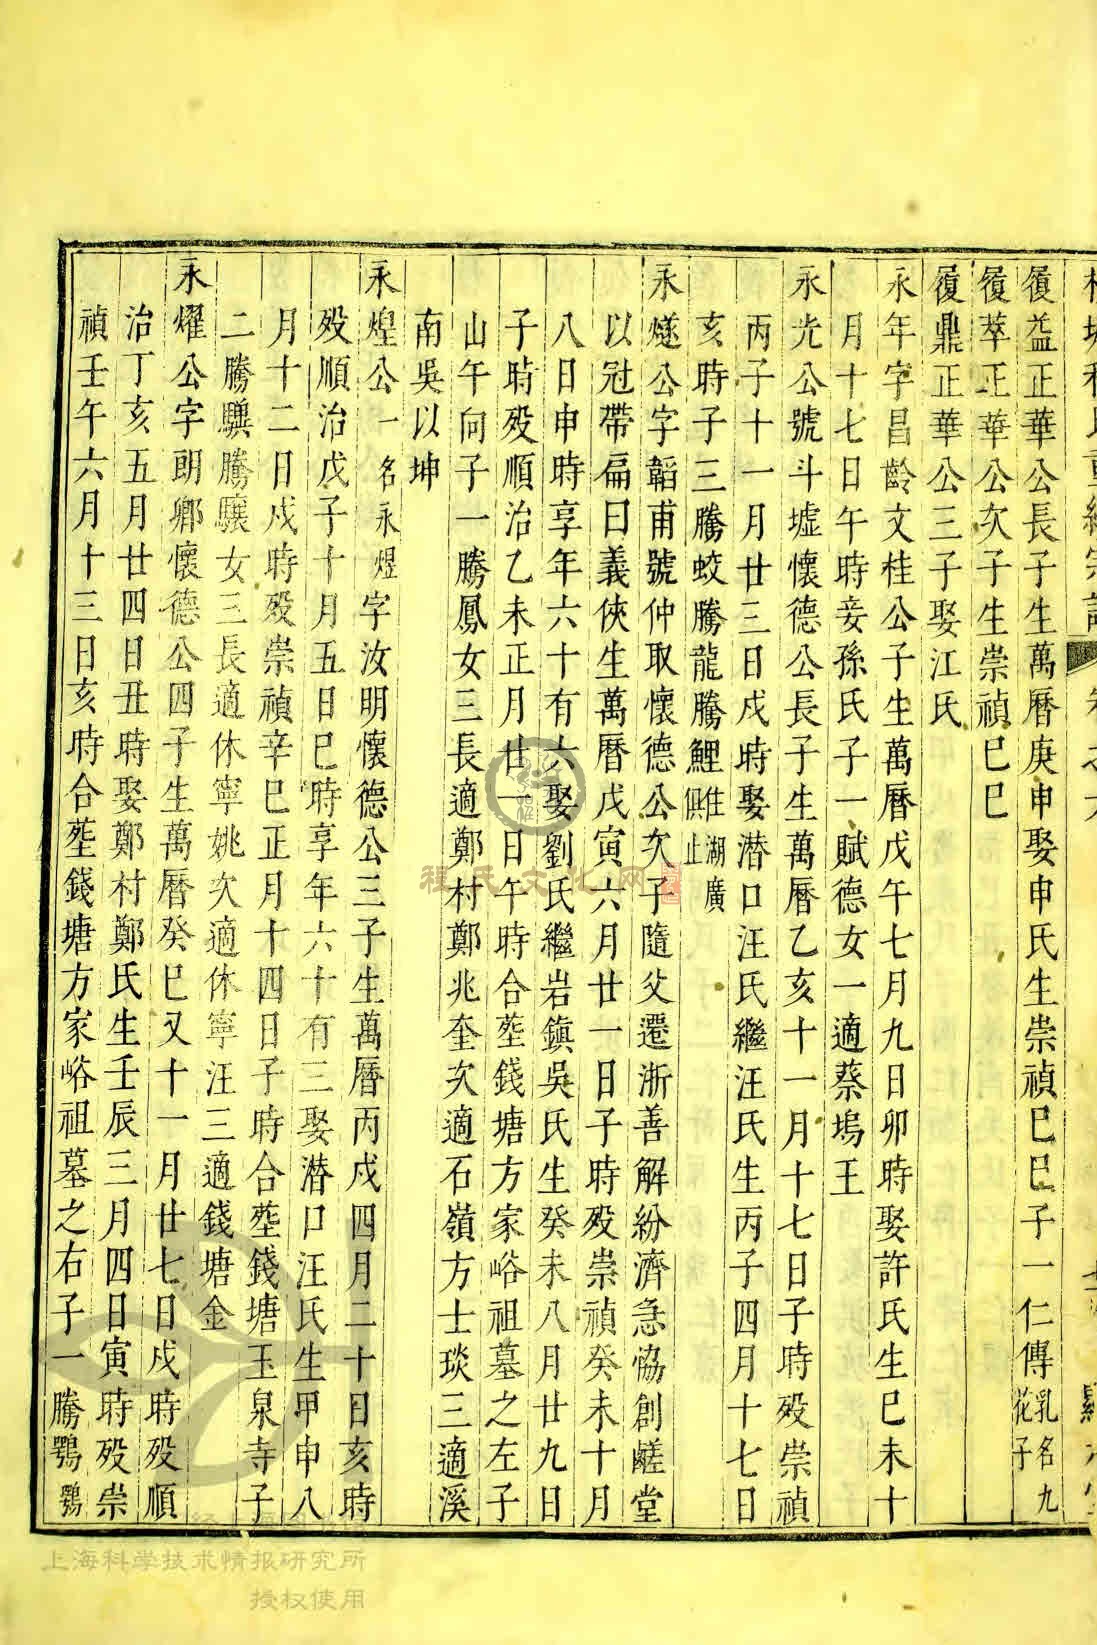 履益正華公長子生萬曆庚申娶申氏生崇禎巳巳子一仁傳乳名九花子
履萃正華公次子生崇禎巳巳
履鼎正華公三子娶江氏
永年字昌齡文桂公子生萬曆戊午七月九日卯時娶許氏生巳未十
月十七日午時妾孫氏子一賦德女一適蔡塢王
永光公號斗墟懷德公長子生萬曆乙亥十一月十七日子時歿崇禎
丙子十一月廿三日戌時娶潜口汪氏繼汪氏生丙子四月十七日
亥時子三騰蛟騰龍騰鯉住湖廣俱止
永燧公字韜甫號仲取懷德公次子隨父遷浙善解紛濟急恊創鹺堂
以冠帶扁曰義俠生萬曆戊寅六月廿一日子時歿崇禎癸未十月
八日申時享年六十有六娶劉氏繼岩鎮吳氏生癸未八月廿九日
子時歿順治乙未正月廿一日午時合塟錢塘方家峪祖墓之左子
山午向子一騰鳳女三長適鄭村鄭兆奎次適石嶺方士琰三適溪
南吳以坤
永煌公一名永煜字汝明懷德公三子生萬曆丙戌四月二十日亥時
歿順治戊子十月五日巳時享年六十有三娶潜口汪氏生甲申八
月十二日戌時歿崇禎辛巳正月十四日子時合塟錢塘玉泉寺子
二騰驥騰驤女三長適休寧姚次適休寧汪三適錢塘金
永燿公字朗卿懷德公四子生萬曆癸巳又十一月廿七日戌時歿順
治丁亥五月廿四日丑時娶鄭村鄭氏生壬辰三月四日寅時歿崇
禎壬午六月十三日亥時合塟錢塘方家峪祖墓之右子一騰鶚鶚
程氏文化网
上海科学技术情报研究所
授权使用